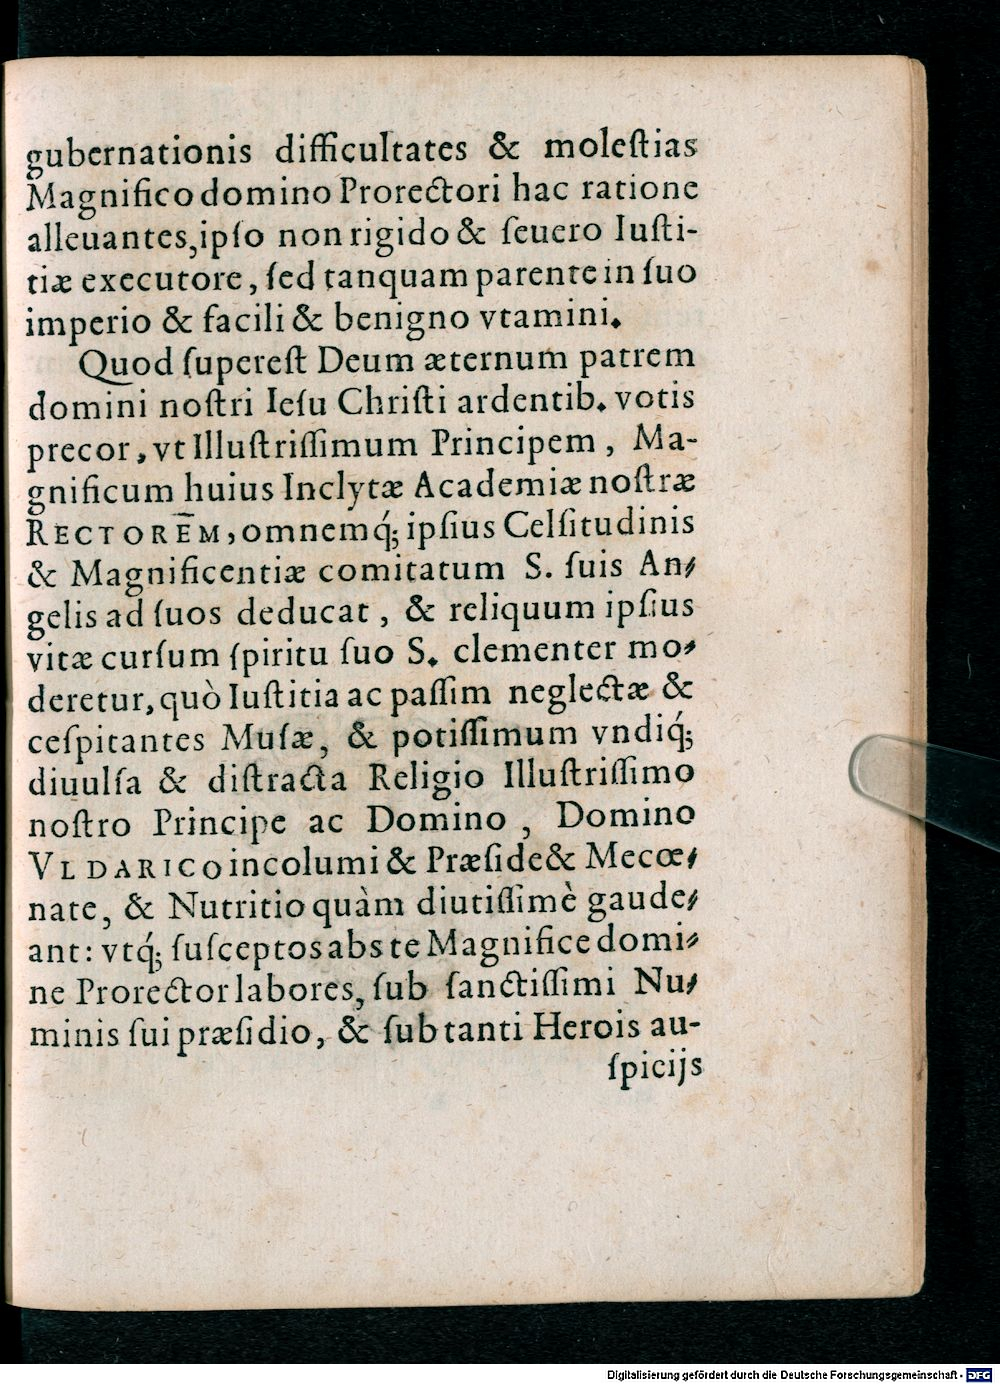 gubernationis difficultates & moleſtias
Magnifico domino Prorectori hac ratione
alleuantes, ipſo non rigido & ſeuero Iuſti-
tiæ executore, ſed tanquam parente in ſuo
imperio & facili & benigno vtamini.
Quod ſupereſt Deum æternum patrem
domini noſtri Ieſu Chriſti ardentib. votis
precor, vt Illuſtriſſimum Principem, Ma-
gnificum huius Inclytæ Academiæ noſtræ
RECTORE̅M, omnemq́; ipſius Celſitudinis
& Magnificentiæ comitatum S. ſuis An-
gelis ad ſuos deducat, & reliquum ipſius
vitæ curſum ſpiritu ſuo S. clementer mo-
deretur, quò Iuſtitia ac paſſim neglectæ &
ceſpitantes Muſæ, & potiſſimum vndiq́;
diuulſa & diſtracta Religio Illuſtriſſimo
noſtro Principe ac Domino, Domino
VLDARICO incolumi & Præſide & Mecœ-
nate, & Nutritio quàm diutiſſimè gaude-
ant: vtq́; ſuſceptos abs te Magnifice domi-
ne Prorector labores, ſub ſanctiſſimi Nu-
minis ſui præſidio, & ſub tanti Herois au-
ſpicijs
Digitalisierung gefördert durch die Deutsche Forschungsgemeinschaft - DFG